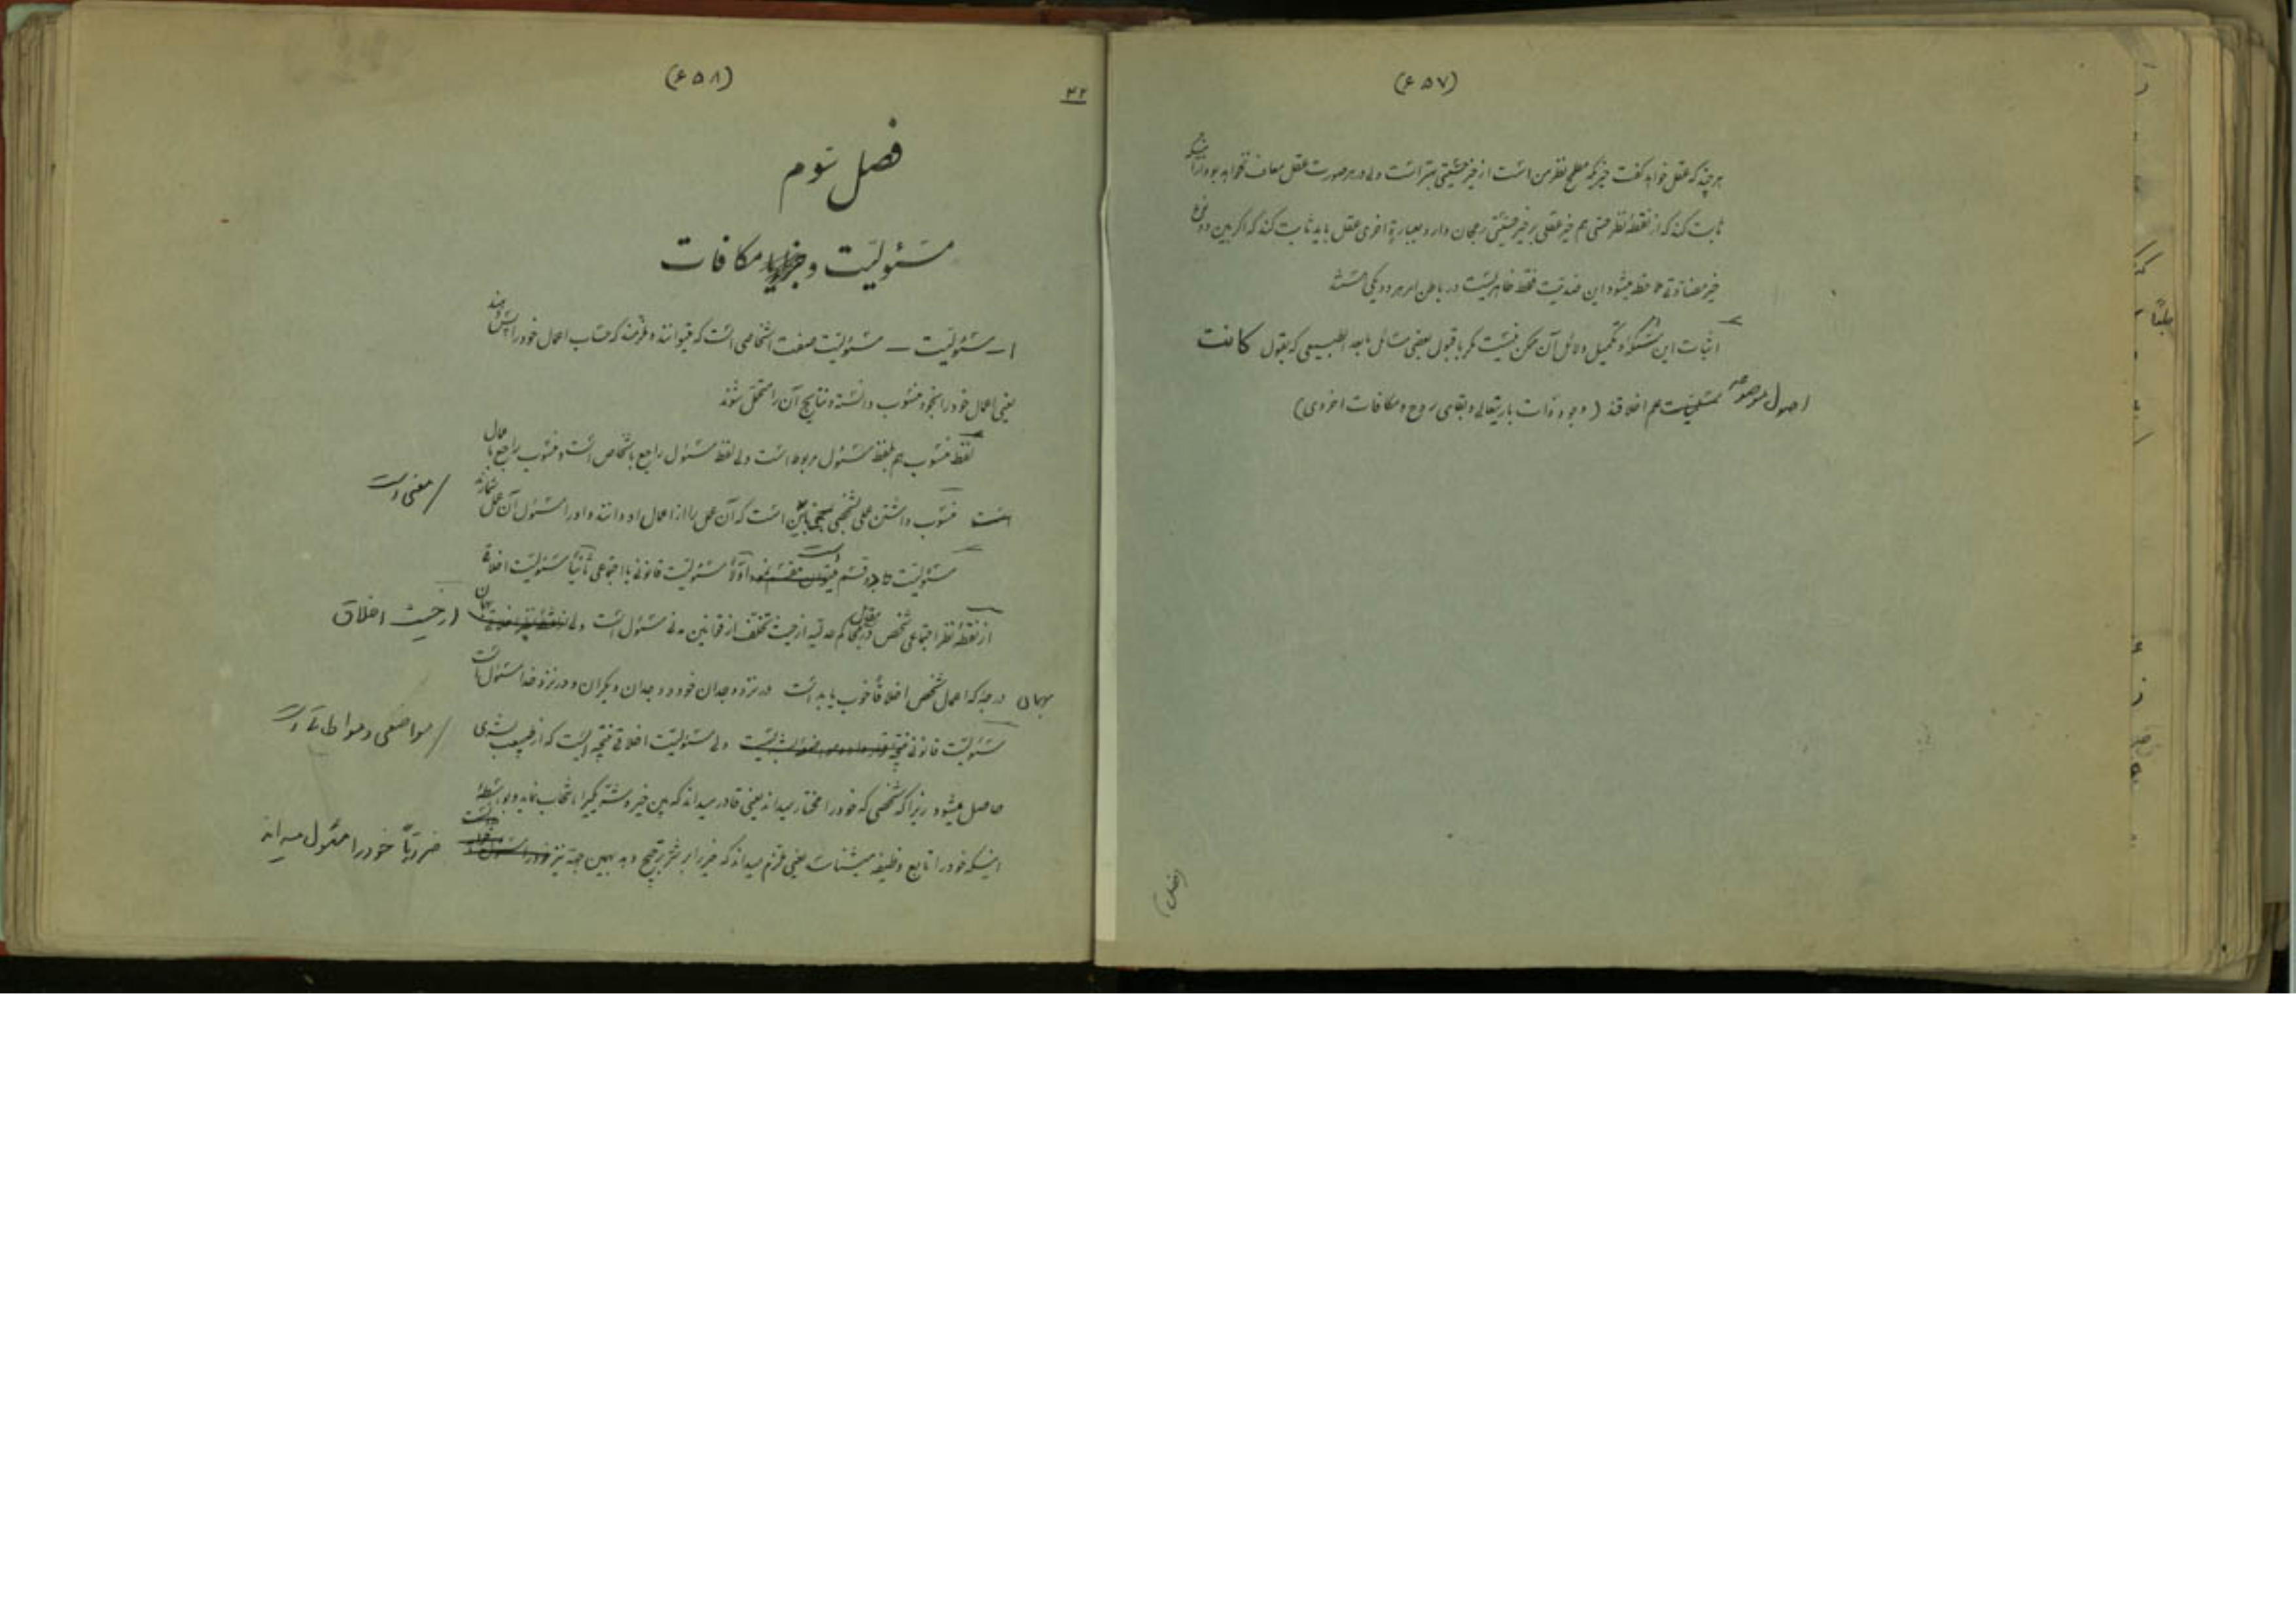 (۴۵۷)
هر چند که عقل خواهد گفت خیریکه مطمح نظر من است از خیر حسّیتی بهتر است ولی در هر صورت عقل معاف نخواهد بود از اینکه
ثابت کند که از نقطهٔ نظر حسّی هم خیر عقلی بر خیر حسّیتی رجحان دارد و بعبارة اخری عقل باید ثابت کند که اگر بین دو نوع
خیر مضادّتی ملاحظه میشود این ضدیّت فقط ظاهریست در باطن امر هر دو یکی هستند
اثبات این مسئله و تکمیل دلائل آن ممکن نیست مگر با قبول بعضی مسائل مابعد الطبیعی که بقول کانت
اصول موضوعهٔ علم اخلاقند (وجود ذات باریتعالی و بقای روح و مکافات اخروی)
(فصل)
(۴۵۸)
۴۲
فصل سوم
مسئولیّت و مکافات
۱ – مسئولیّت – مسئولیّت صفت اشخاصی است که میتوانند و ملزمند که حساب اعمال خود را پس دهند
یعنی اعمال خود را بخود منسوب دانسته و نتایج آن را متحمّل شوند
لفظ منسوب هم بلفظ مسئول مربوط است ولی لفظ مسئول راجع باشخاص است و منسوب راجع باعمال
است منسوب داشتن عملی بشخصی باین معنی است که آن عمل را از اعمال او دانند و او را مسئول آن عمل شمارند
مسئولیّت دو قسم است اوّلاً مسئولیّت قانونی یا اجتماعی ثانیاً مسئولیّت اخلاقی
از نقطهٔ نظر اجتماعی شخص در مقابل محاکم عدلیه از حیث تخلّف از قوانین مدنی مسئول است ولی از حیث اخلاق
بهمان درجه که اعمال شخص اخلاقاً خوب یا بد است در نزد وجدان خود و وجدان دیگران و در نزد خدا مسئول است
مسئولیّت قانونی مواضعی و مواطاتی است ولی مسئولیّت اخلاقی نتیجه ایست که از طبیعت بشری
حاصل میشود زیرا که شخصی که خود را مختار میداند یعنی قادر میداند که بین خیر و شرّ یکیرا انتخاب نماید و بواسطهٔ
اینکه خود را تابع وظیفه میشناسد یعنی ملزم میداند که خیر را بر شرّ ترجیح دهد بهمین جهة نیز خود را مسئول میداند